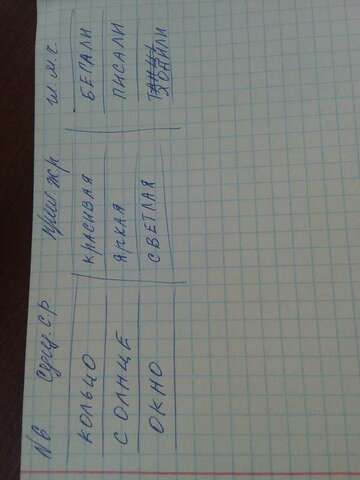 N 6 Сущ. ср прил жр гл. м.ч.
КОЛЬЦО КРАСИВАЯ БЕГАЛИ
СОЛНЦЕ ЯРКАЯ ПИСАЛИ
ОКНО СВЕТЛАЯ ХОДИЛИ